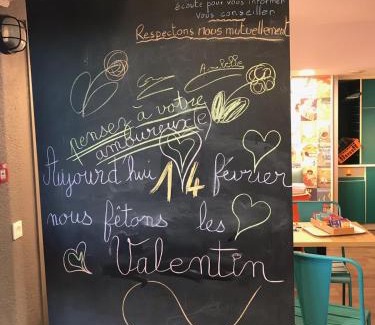 écoute pour vous informer
Vous conseiller
Respectons nous mutuellement
pensez à votre
amoureux(e)
Aujourd'hui 14 février
nous fêtons les
Valentin